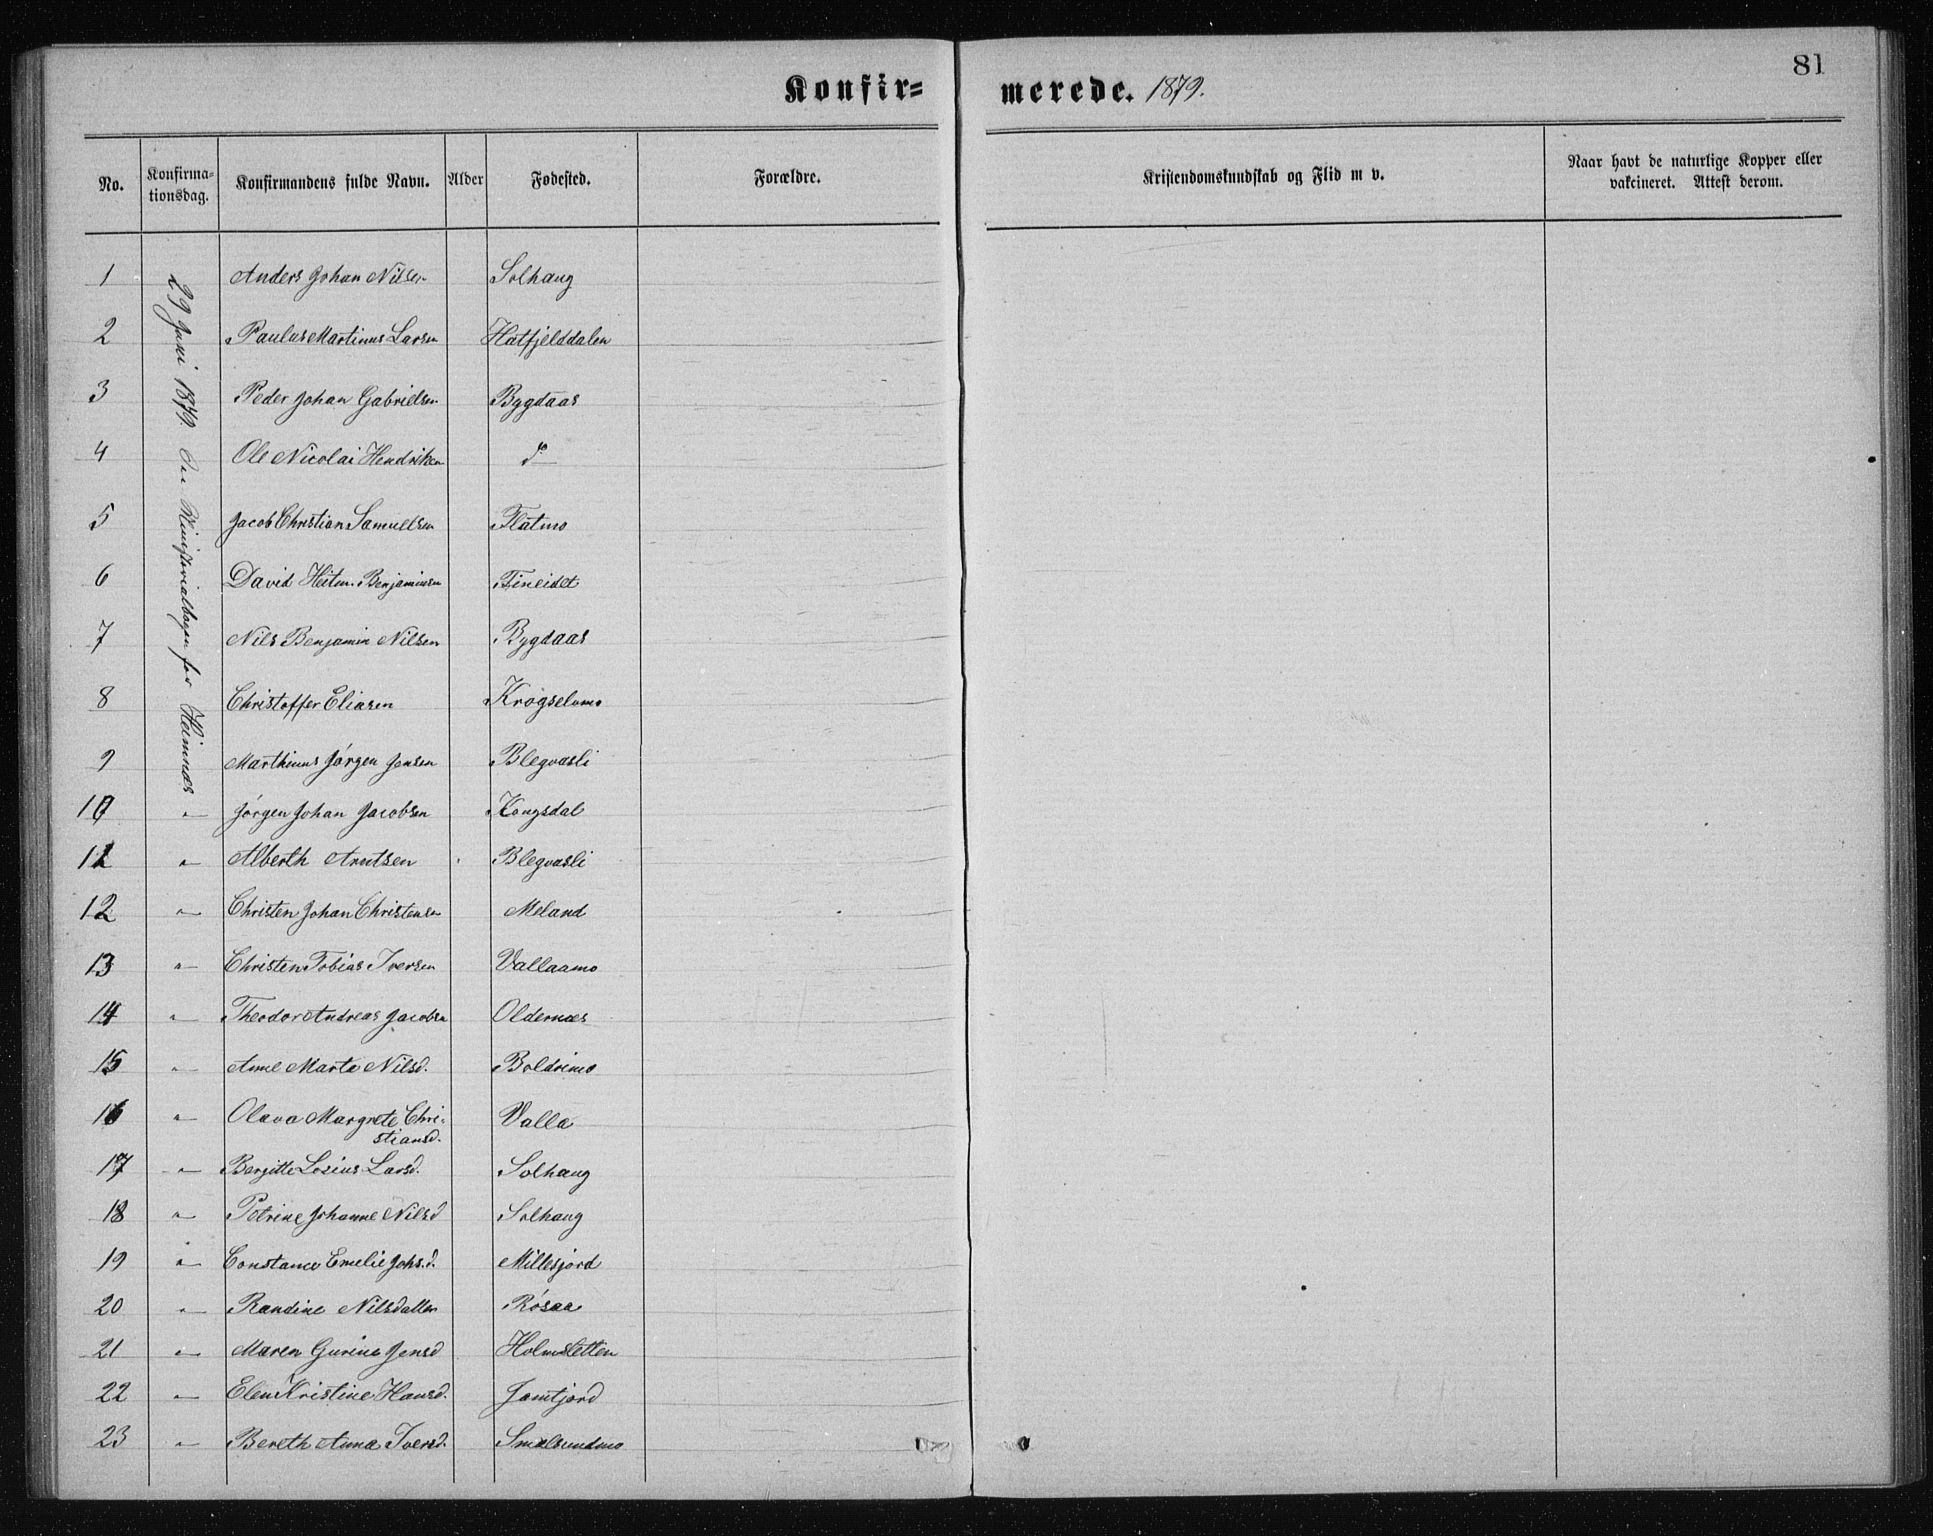 81
Konfir= merede. 1879.
No. Konfirma-tionsdag. Konfirmandens fulde Navn. Alder Fødested. Forældre. Kristendomskundskab og Flid m v. Naar havt de naturlige Kopper eller vakcineret. Attest derom.
29 Juni 1879. Ministerialbogen for Heimnæs
1 Anders Johan Nilsen Solhaug
2 Paulus Martinus Larsen Hatfjelddalen
3 Peder Johan Gabrielsen Bygdaas
4 Ole Nicolai Hendriksen do
5 Jacob Christian Samuelsen Flatmo
6 David Heitm. Benjaminsen Fineidet
7 Nils Benjamin Nilsen Bygdaas
8 Christoffer Eliasen Krogselvmo
9 Marthinus Jørgen Jensen Blegvasli
10 " Jørgen Johan Jacobsen Kongsdal
11 " Alberth Arntsen Blegvasli
12 " Christen Johan Christensen Meland
13 " Christen Tobias Iversen Vallaamo
14 " Theodor Andreas Jacobsen Oldernæs
15 " Anne Marta Nilsd. Boldrimo
16 " Olava Margrete Chri-
stiansd. Valla
17 " Bergitte Losius Larsd. Solhaug
18 " Petrine Johanne Nilsd Solhaug
19 " Constance Emelie Johs.d. Millesjord
20 " Randine Nilsdatter Røsaa
21 " Maren Gurine Jensd Holmsletten
22 " Elen Kristine Hansd. Jamtjord
23 " Bereth Anna Iversd. Smalsundmo